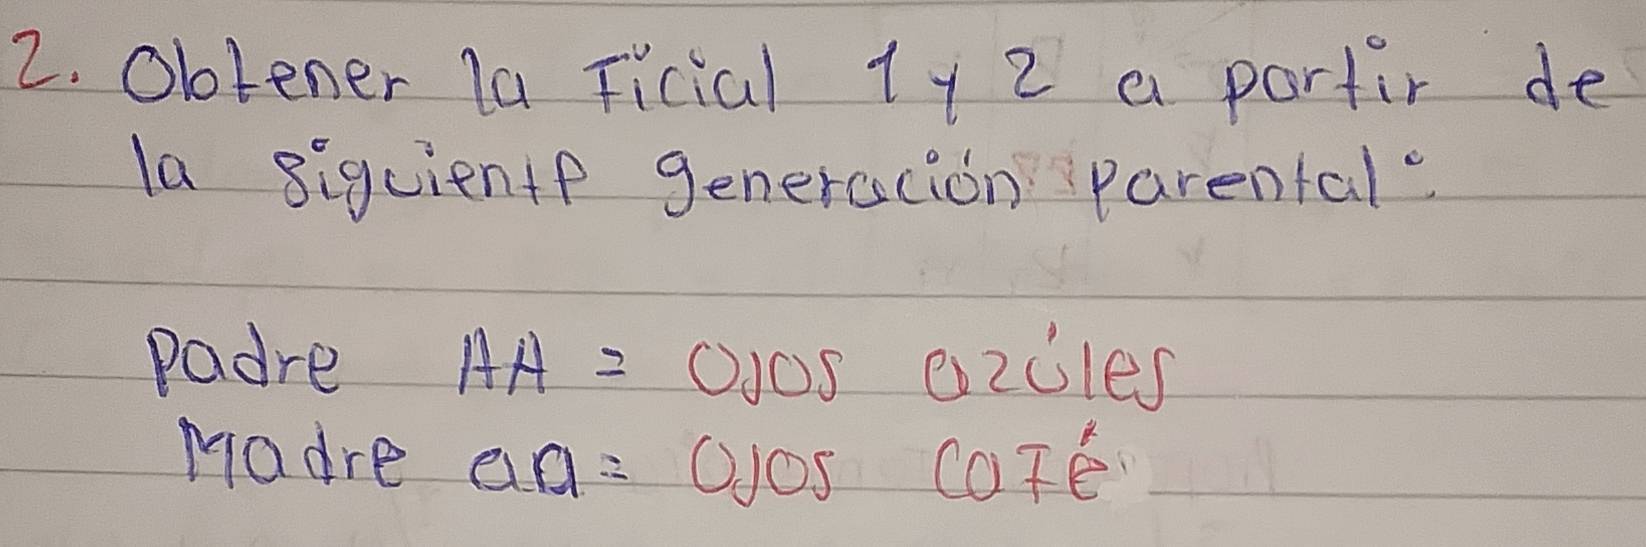 2. Obtener la Ficial 1 y 2 a partir de
la siguiente generación parental:
Padre AA = Ojos azúles
Madre aa = Ojos café